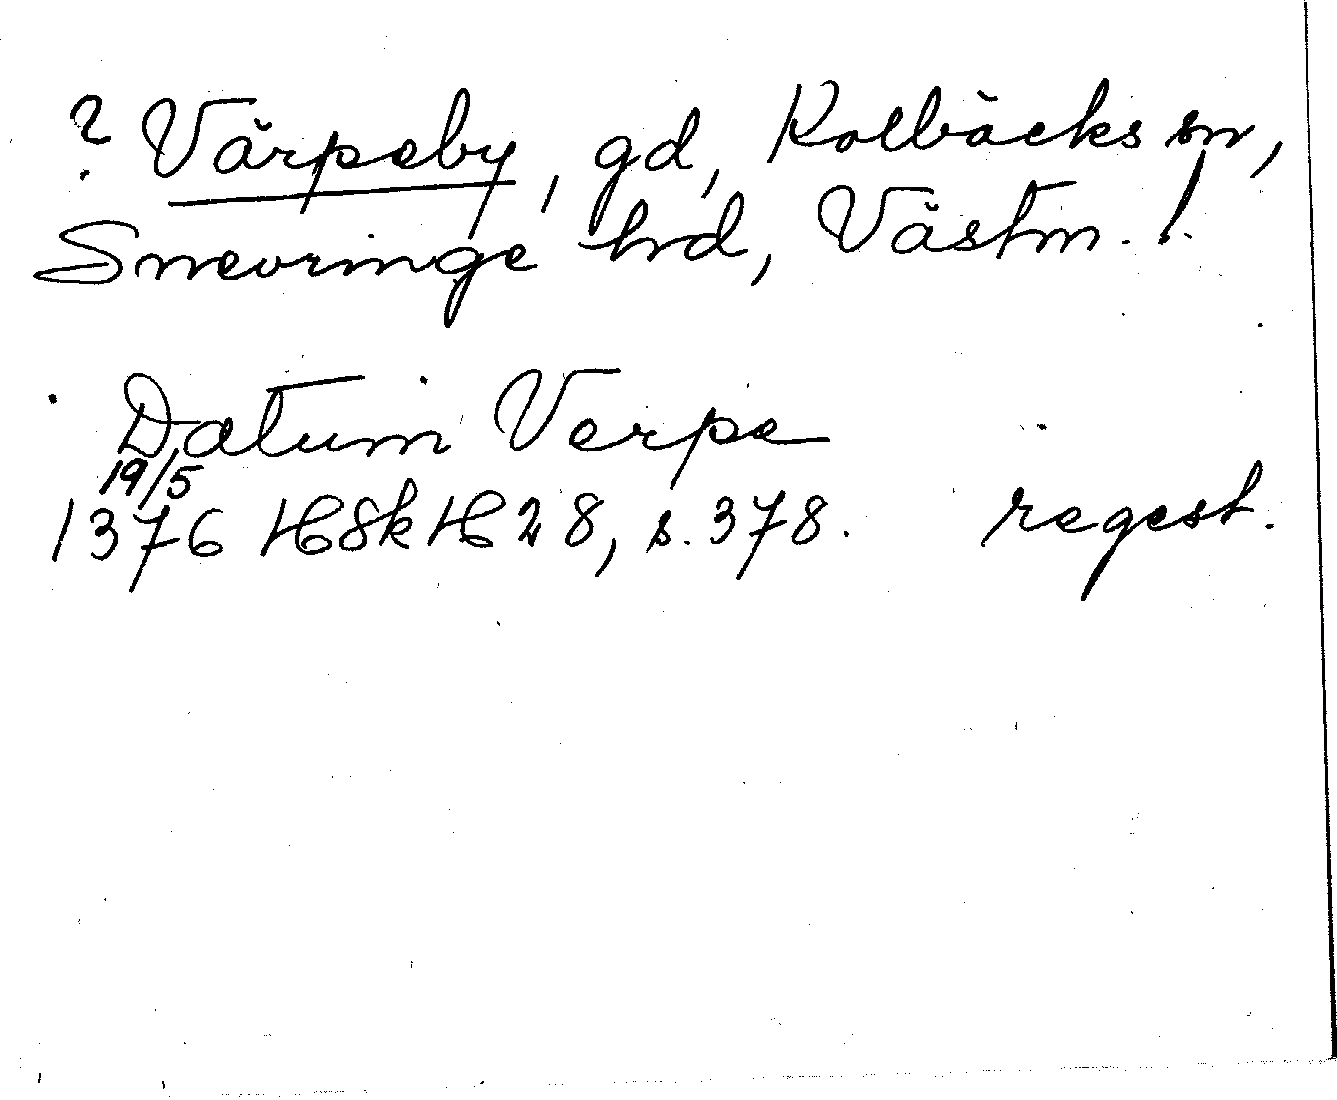 ? Värpeby, gd, Kolbäcks sn,
Snevringe hrd, Västm. l.
Datum Verpe
19/5
1376 HSkH 28, s. 378. regest.